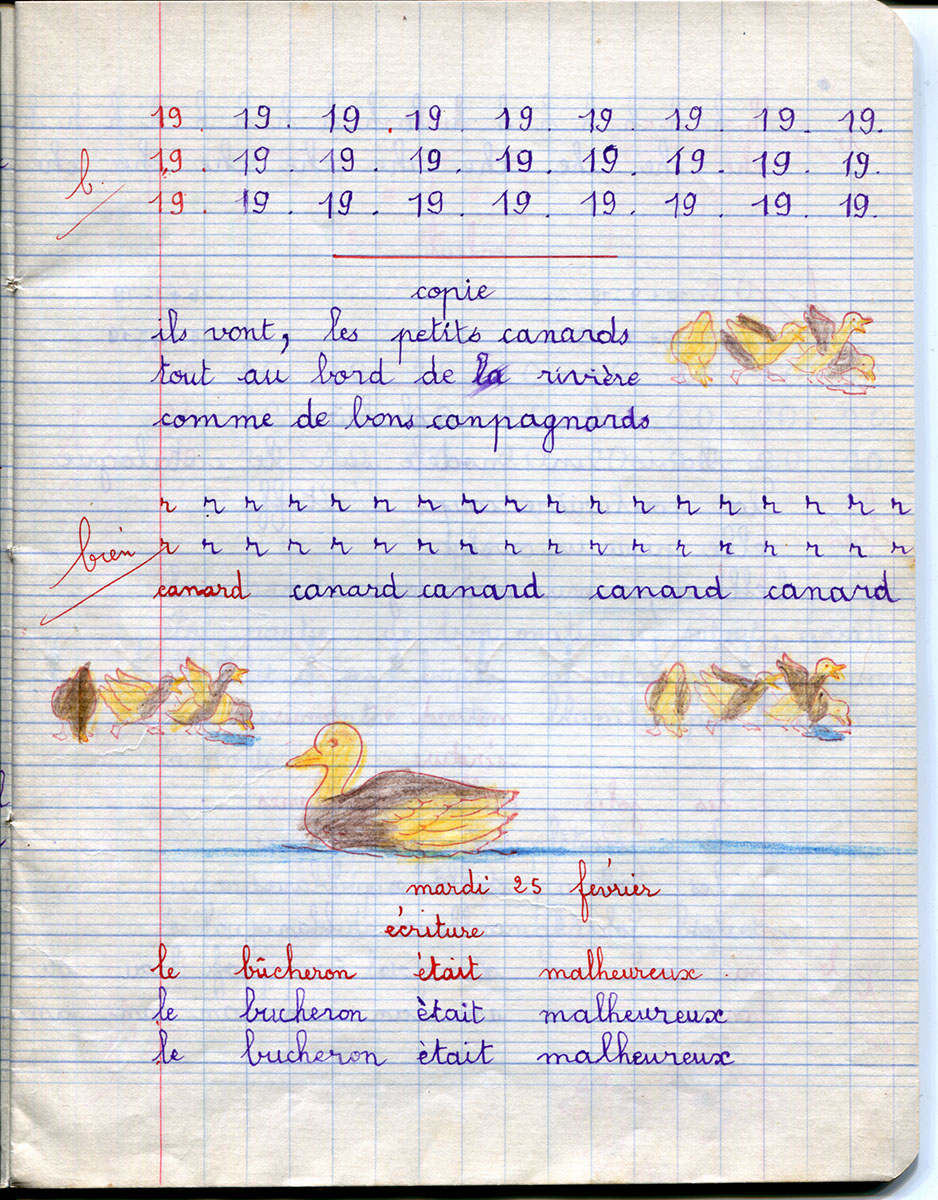 19. 19. 19. 19. 19. 19. 19. 19. 19.
b. 19. 19. 19. 19. 19. 19. 19. 19. 19.
19. 19. 19. 19. 19. 19. 19. 19. 19.
copie
ils vont, les petits canards
tout au bord de la rivière
comme de bons canpagnards
r r r r r r r r r r r r r r r r r r
bien r r r r r r r r r r r r r r r r r r
canard canard canard canard canard
mardi 25 février
écriture
le bûcheron était malheureux.
le bucheron ètait malheureux
le bucheron ètait malheureux